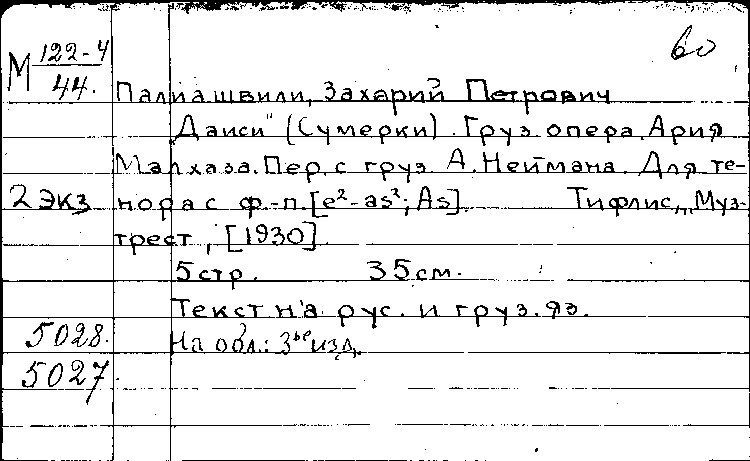 М 122-4
44.
60
Палиашвили, Захарий Петрович
„Даиси" (Сумерки). Груз. опера. Ария
Малхаза. Пер. с груз. А. Неймана. Для те-
2 экз
нора с ф.-п. [e²-as²; As]. Тифлис, „Муз-
трест, [1930].
5 стр. 35 см.
Текст на рус. и груз. яз.
5028.
На обл.: 3ье изд.
5027.